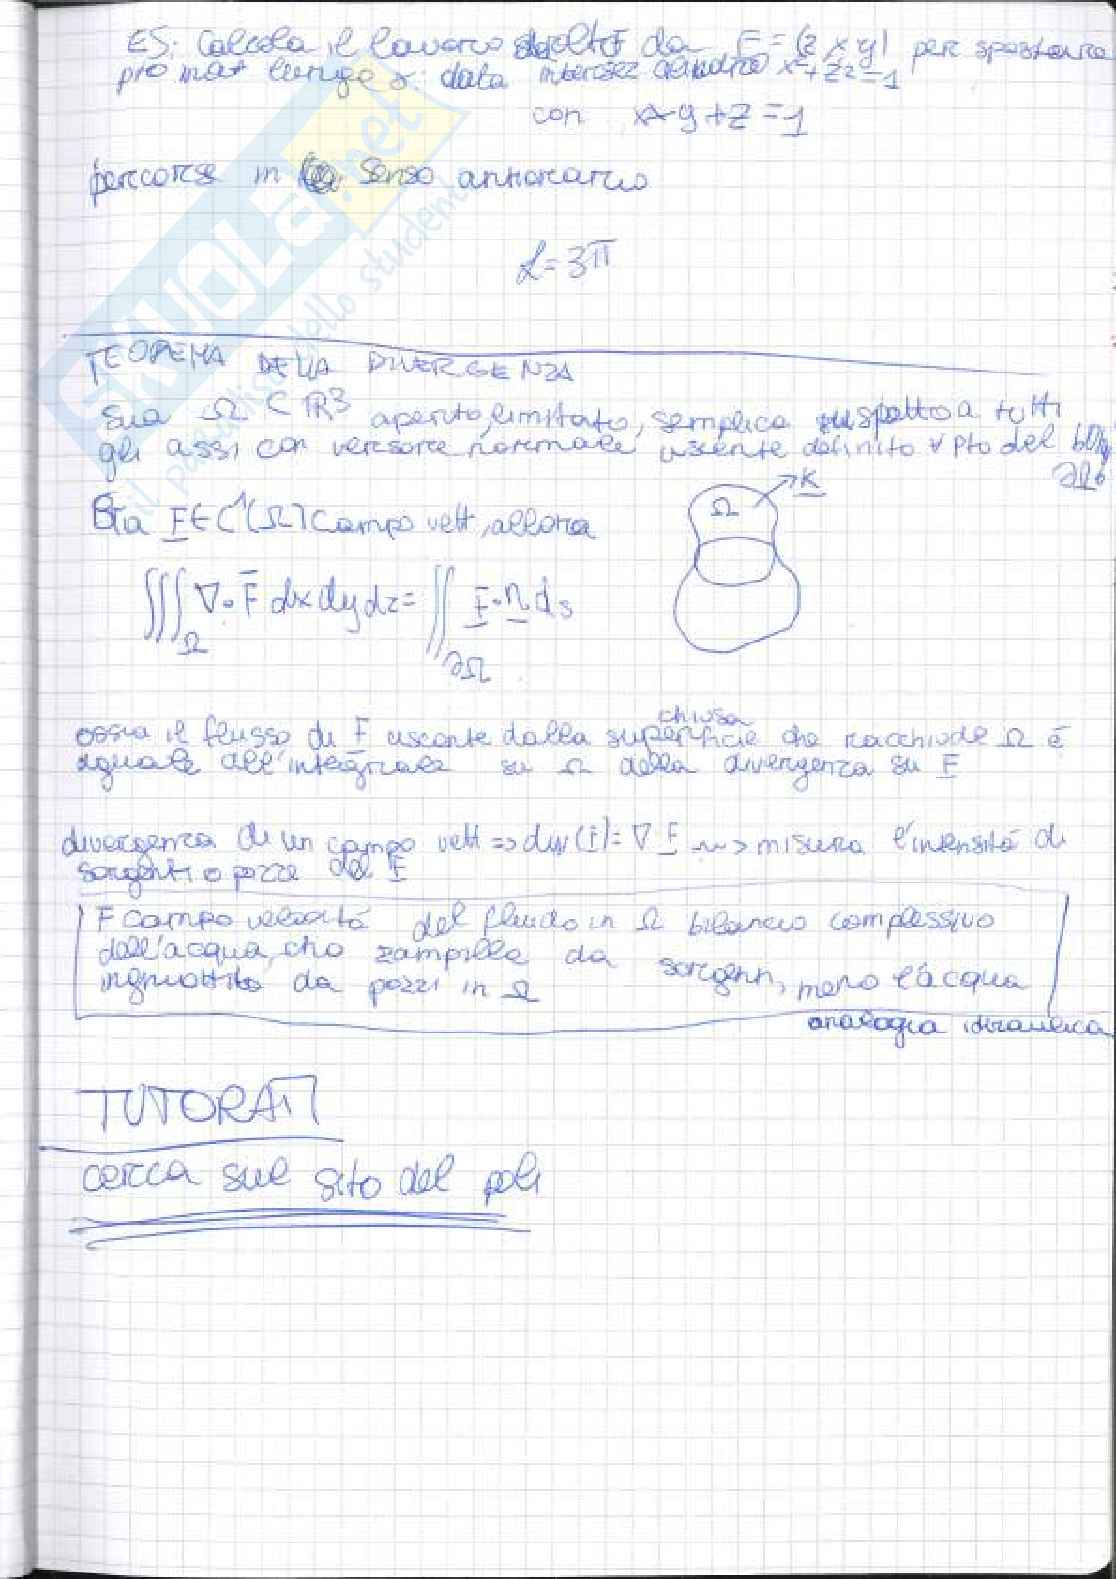 ES: Calcola il lavoro svolto da F = (z x y) per spostare
pto mat lungo γ data intersez cilindro x²+z²=1
con x-y+z=1
percorsa in senso antiorario
L=3π
TEOREMA DELLA DIVERGENZA
Sia Ω ⊂ ℝ³ aperto, limitato, semplice rispetto a tutti
gli assi con versore normale uscente definito ∀ pto del bordo
∂Ω
Sia F ∈ C¹(Ω) campo vett, allora
Ω
∭_Ω ∇·F dxdydz = ∬_∂Ω F·n ds
ossia il flusso di F uscente dalla superficie chiusa che racchiude Ω è
uguale all'integrale su Ω della divergenza su F
divergenza di un campo vett => div(F) = ∇ F ~> misura l'intensità di
sorgenti o pozze del F
F campo velocità del fluido in Ω bilancio complessivo
dell'acqua, che zampilla da sorgenti, meno l'acqua
inghiottita da pozzi in Ω
analogia idraulica
TUTORATI
cerca sul sito del poli
SKUOLA.net
il paradiso dello studente